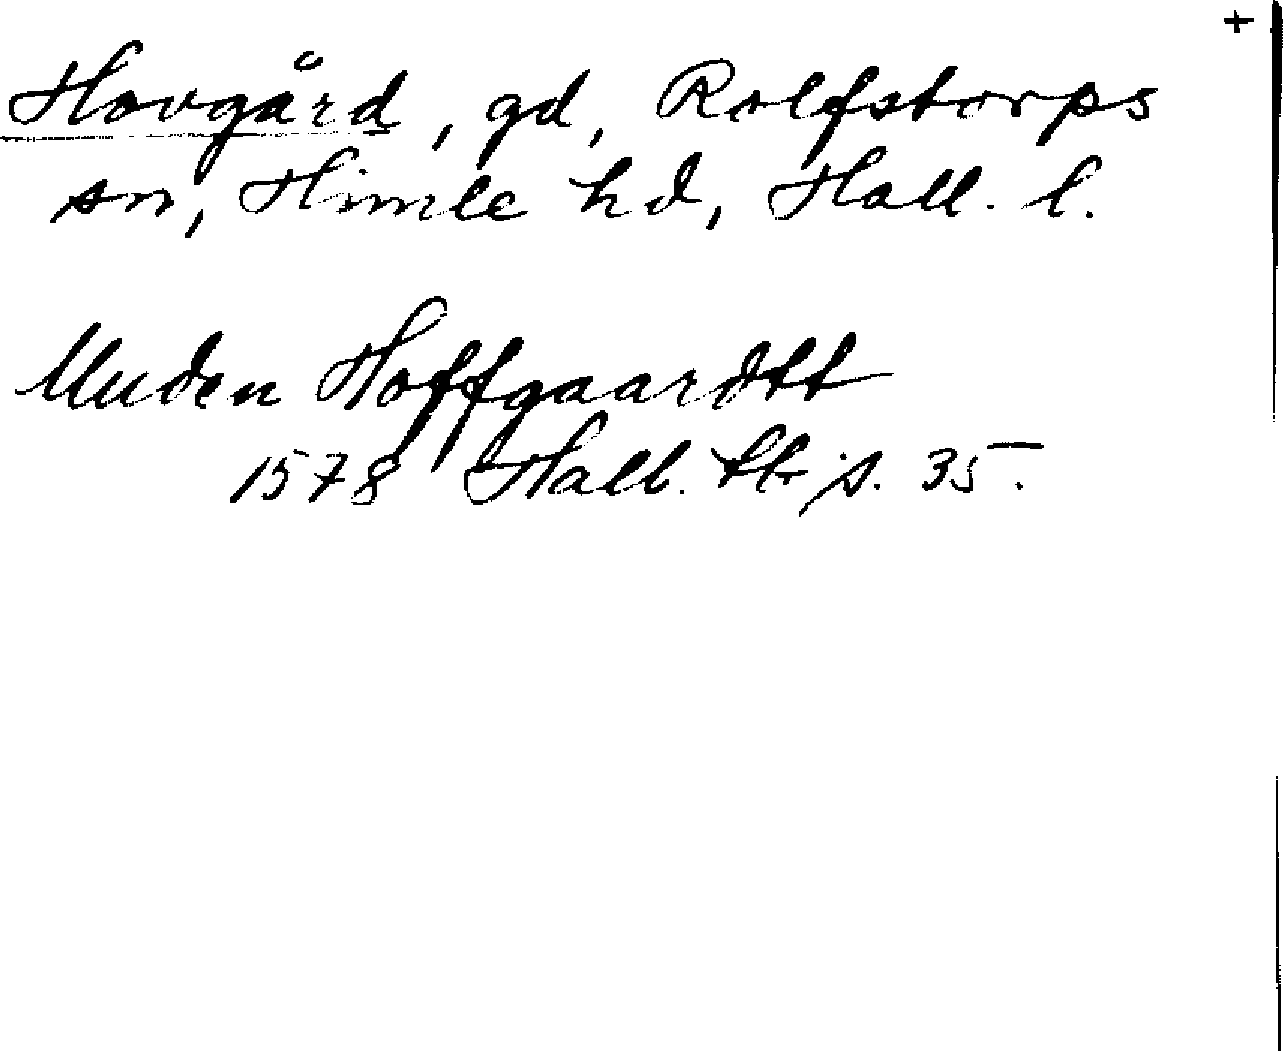 +
Hovgård, gd, Rolfstorps
sn, Himle hd, Hall. l.
Uuden Hoffgaardtt
1578 Hall. tb s. 35.